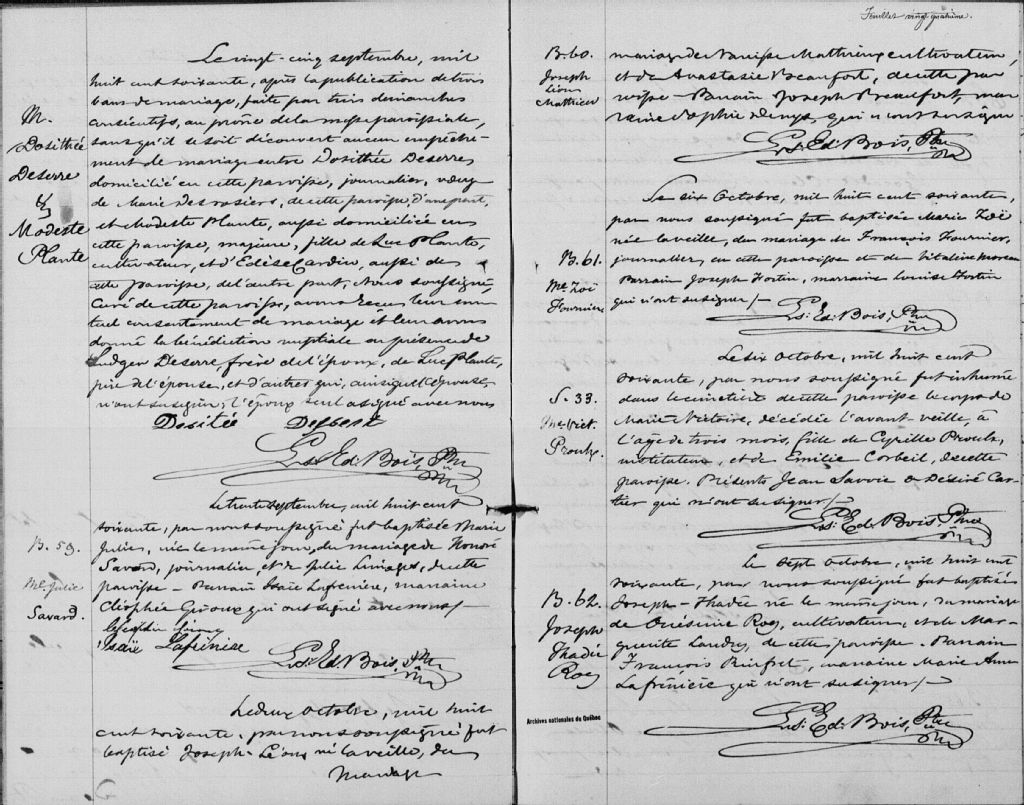 M.
Dosithée
Deserre
&
Modeste
Plante
Le vingt-cinq septembre, mil
huit cent soixante, après la publication de trois
bans de mariage, faite par trois dimanches
consécutifs, au prône de la messe paroissiale,
sans qu'il se soit découvert aucun empêche-
ment de mariage entre Dosithée Deserre,
domicilié en cette paroisse, journalier, veuf
de Marie Desrosiers, de cette paroisse, d'une part,
et Modeste Plante, aussi domiciliée en
cette paroisse, majeure, fille de Luc Plante,
cultivateur, et d'Edise Cardin, aussi de
cette paroisse, de l'autre part, Nous soussigné,
Curé de cette paroisse, avons reçu leur mu-
tuel consentement de mariage et leur avons
donné la bénédiction nuptiale en présence de
Ludger Deserre, frère de l'époux, de Luc Plante,
père de l'épouse, et d'autres qui, ainsi que l'épouse,
n'ont su signer, l'époux seul a signé avec nous
Dositée
Ls. Ed. Bois, Ptre
B. 59.
Me. Julie
Savard.
Le trente septembre, mil huit cent
soixante, par nous soussigné fut baptisée Marie
Julie, née le même jour, du mariage de Honoré
Savard, journalier, et de Julie Limoges, de cette
paroisse - Parrain Isaïe Lafrenière, marraine
Cléophée Giroux qui ont signé avec nous /-
Isaïe Lafrinièse
Ls. Ed. Bois, Ptre
Le deux octobre, mil huit
cent soixante, par nous soussigné fut
baptisé Joseph-Léon né la veille, du
mariage
Feuillet vingt quatrième.
B. 60.
Joseph
Léon
Matthieu
mariage de Narcisse Matthieu cultivateur,
et de Anastasie Beaufort, de cette pa-
roisse - Parrain Joseph Beaufort, mar-
raine Sophie Denys, qui n'ont su signer
Ls. Ed. Bois, Ptre
B. 61.
Me. Zoë
Fournier
Le six Octobre, mil huit cent soixante,
par nous soussigné fut baptisée Marie Zoë
née la veille, du mariage de François Fournier,
journalier, en cette paroisse et de Vitaline Moreau
Parrain Joseph Fortin, marraine Louise Fortin
qui n'ont su signer /-
Ls. Ed. Bois, Ptre
S. 33.
Me. Vict.
Proulx.
Le six Octobre, mil huit cent
soixante, par nous soussigné fut inhumé
dans le cimetière de cette paroisse le corps de
Marie Victoire, décédée l'avant veille, à
l'âge de trois mois, fille de Cyrille Proulx,
instituteur, et de Emilie Corbeil, de cette
paroisse. Présents Jean Savoie & Désiré Car-
tier qui n'ont su signer /-
Ls. Ed. Bois, Ptre
B. 62.
Joseph
Thadée
Roy
Le sept Octobre, mil huit cent
soixante, par nous soussigné fut baptisé
Joseph-Thadée né le même jour, du mariage
de Onésime Roy, cultivateur, et de Mar-
guerite Landry, de cette paroisse. Parrain
François Rinfret, marraine Marie Anne
Lafrinière qui n'ont su signer /-
Ls. Ed. Bois, Ptre
Archives nationales du Québec